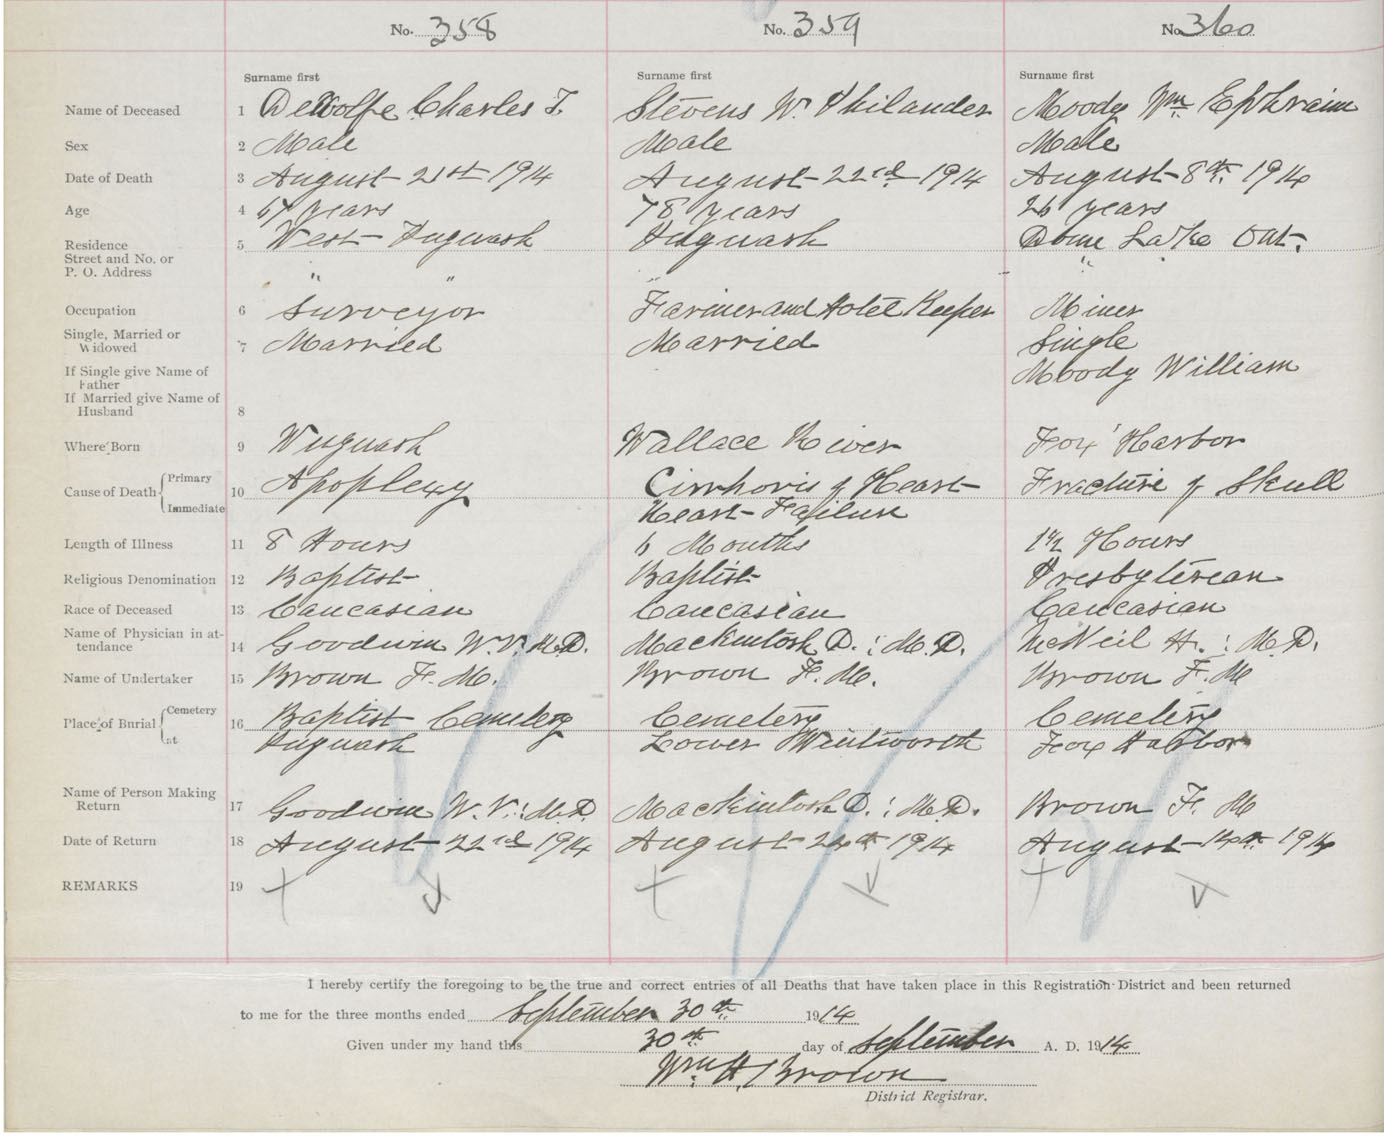 No. 358 No. 359 No. 360
Surname first Surname first Surname first
Name of Deceased 1 DeWolfe Charles F. Stevens W. Philander Moody Wm Ephraim
Sex 2 Male Male Male
Date of Death 3 August 21st 1914 August 22nd 1914 August 8th 1914
Age 4 67 years 78 years 26 years
Residence 5 West Pugwash Pugwash Dome Lake Ont.
Street and No. or
P. O. Address " " " "
Occupation 6 Surveyor Farmer and Hotel Keeper Miner
Single, Married or
Widowed 7 Married Married Single
If Single give Name of
Father Moody William
If Married give Name of
Husband 8
Where Born 9 Pugwash Wallace River Fox Harbor
Cause of Death Primary 10 Apoplexy Cirrhoris of Heart Fracture of Skull
Immediate Heart Failure
Length of Illness 11 8 Hours 6 Months 1 1/2 Hours
Religious Denomination 12 Baptist Baptist Presbyterean
Race of Deceased 13 Caucasian Caucasian Caucasian
Name of Physician in at-
tendance 14 Goodwin W. V. M.D. Mackintosh D. : M.D. McNeil H. : M.D.
Name of Undertaker 15 Brown F. M. Brown F. M. Brown F. M
Place of Burial Cemetery 16 Baptist Cemetery Cemetery Cemetery
at Pugwash Lower Wentworth Fox Harbor
Name of Person Making
Return 17 Goodwin W. V. : M.D. Mackintosh D. : M.D. Brown F. M
Date of Return 18 August 22nd 1914 August 24th 1914 August 14th 1914
REMARKS 19
I hereby certify the foregoing to be the true and correct entries of all Deaths that have taken place in this Registration District and been returned
to me for the three months ended September 30th 1914
Given under my hand this 30th day of September A. D. 1914
Wm H. Brown
District Registrar.